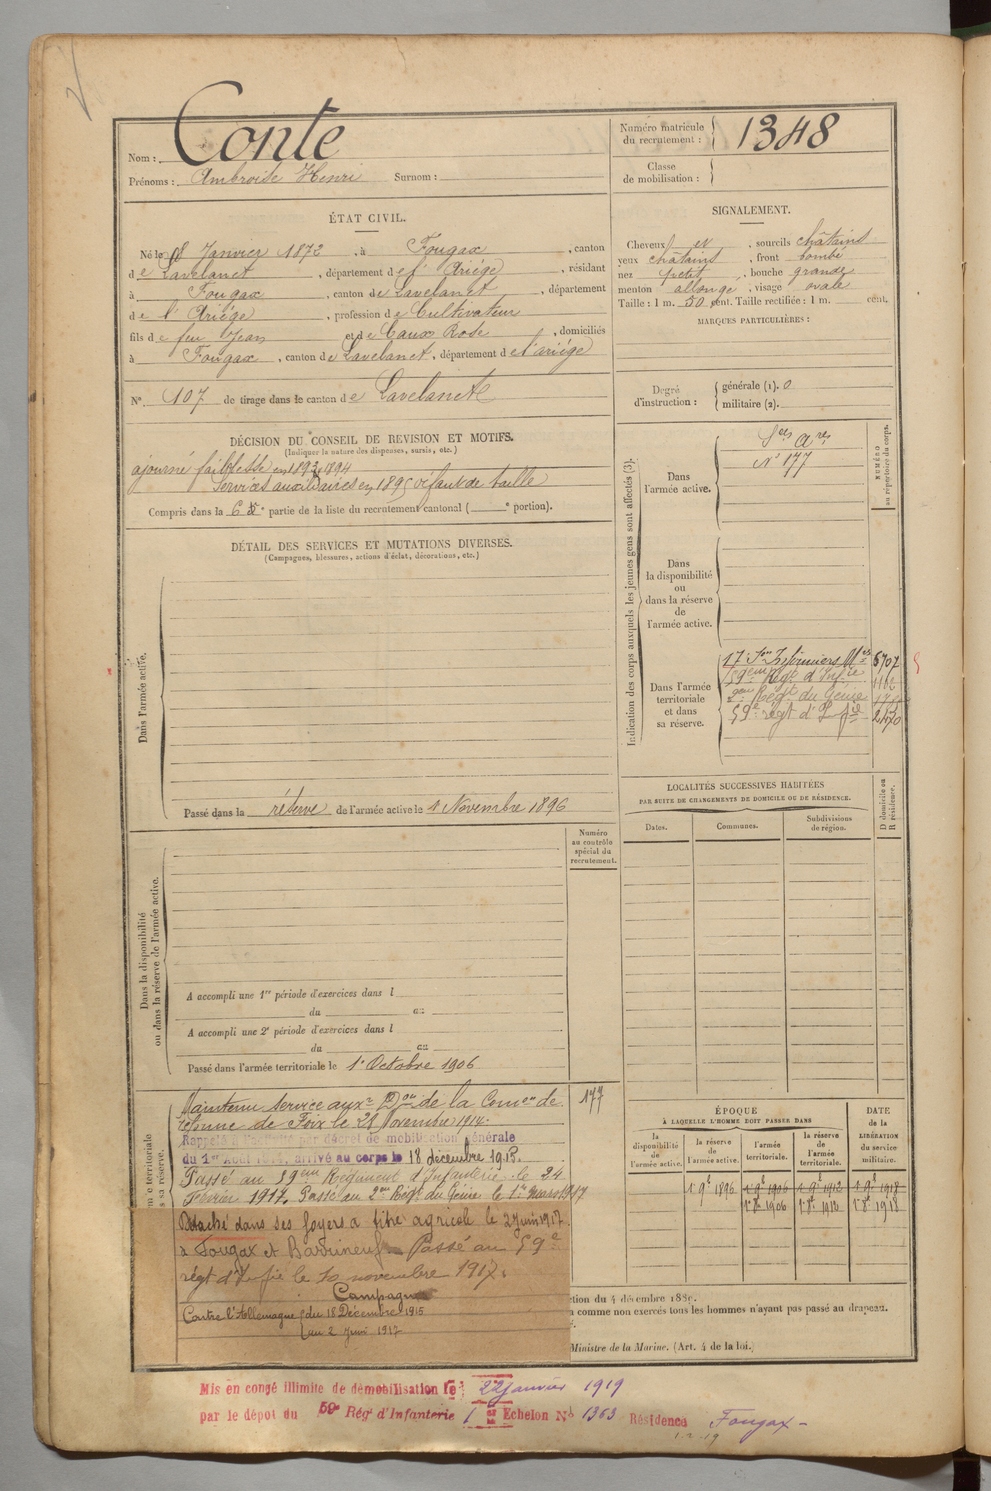 Nom : Conte
Prénoms : Ambroise Henri Surnom :
Numéro matricule du recrutement : 1348
Classe de mobilisation :
ÉTAT CIVIL.
Né le 8 Janvier 1872, à Fougax, canton
de Lavelanet, département de l'Ariége, résidant
à Fougax, canton de Lavelanet, département
de l'Ariége, profession de Cultivateur
fils de feu Jean et de Caux Rose, domiciliés
à Fougax, canton de Lavelanet, département de l'ariége
N° 107 de tirage dans le canton de Lavelanet
SIGNALEMENT.
Cheveux , sourcils châtains
yeux châtains, front bombé
nez petit, bouche grande
menton allongé, visage ovale
Taille : 1 m. 50 cent. Taille rectifiée : 1 m. cent.
MARQUES PARTICULIÈRES :
Degré d'instruction : générale (1). 0
militaire (2).
DÉCISION DU CONSEIL DE REVISION ET MOTIFS.
(Indiquer la nature des dispenses, sursis, etc.)
ajourné faiblesse en 1893, 1894
Services auxiliaires en 1895 défaut de taille
Compris dans la 6 e partie de la liste du recrutement cantonal ( e portion).
DÉTAIL DES SERVICES ET MUTATIONS DIVERSES.
(Campagnes, blessures, actions d'éclat, décorations, etc.)
Dans l'armée active.
Passé dans la réserve de l'armée active le 1 Novembre 1896
Indication des corps auxquels les jeunes gens sont affectés (3).
NUMÉRO au répertoire du corps.
Dans l'armée active.
Sces Ares
N° 177
Dans la disponibilité ou dans la réserve de l'armée active.
Dans l'armée territoriale et dans sa réserve.
17e Son Infirmiers Mres 5707
59eme Régt d'Infie 1162
2eme Régt du Génie
59e régt d'Infie
LOCALITÉS SUCCESSIVES HABITÉES
PAR SUITE DE CHANGEMENTS DE DOMICILE OU DE RÉSIDENCE.
Dates.
Communes.
Subdivisions de région.
D domicile ou R résidence.
Numéro au contrôle spécial du recrutement.
Dans la disponibilité ou dans la réserve de l'armée active.
A accompli une 1re période d'exercices dans l
du au
A accompli une 2e période d'exercices dans l
du au
Passé dans l'armée territoriale le 1er Octobre 1906
Maintenu service auxre Don de la Comon de 177
réforme de Foix le 28 Novembre 1914.
Rappelé à l'activité par décret de mobilisation générale
du 1er Août 1914, arrivé au corps le 18 décembre 1915.
Passé au 59eme Régiment d'Infanterie le 24
Février 1917. Passé au 2me Régt du Génie le 1er mars 1917
Détaché dans ses foyers a titre agricole le 2 juin 1917
à Fougax et Barrineuf Passé au 59e
régt d'Infie le 10 novembre 1917.
Campagne
Contre l'Allemagne du 18 Décembre 1915
au 2 Juin 1917
ÉPOQUE
À LAQUELLE L'HOMME DOIT PASSER DANS
la disponibilité de l'armée active.
la réserve de l'armée active.
l'armée territoriale.
la réserve de l'armée territoriale.
DATE DE LA LIBÉRATION du service militaire.
1 9e 1896 1 9e 1906 1 9e 1912 1 9e 1918
1er 8e 1906 1er 8e 1912 1er 8e 1918
ction du 4 décembre 188
comme non exercés tous les hommes n'ayant pas passé au drapeau.
Ministre de la Marine. (Art. 4 de la loi.)
Mis en congé illimité de démobilisation le 22 janvier 1919
par le dépot du 59e Régt d'Infanterie 1er Echelon No 1363 Résidence Fougax